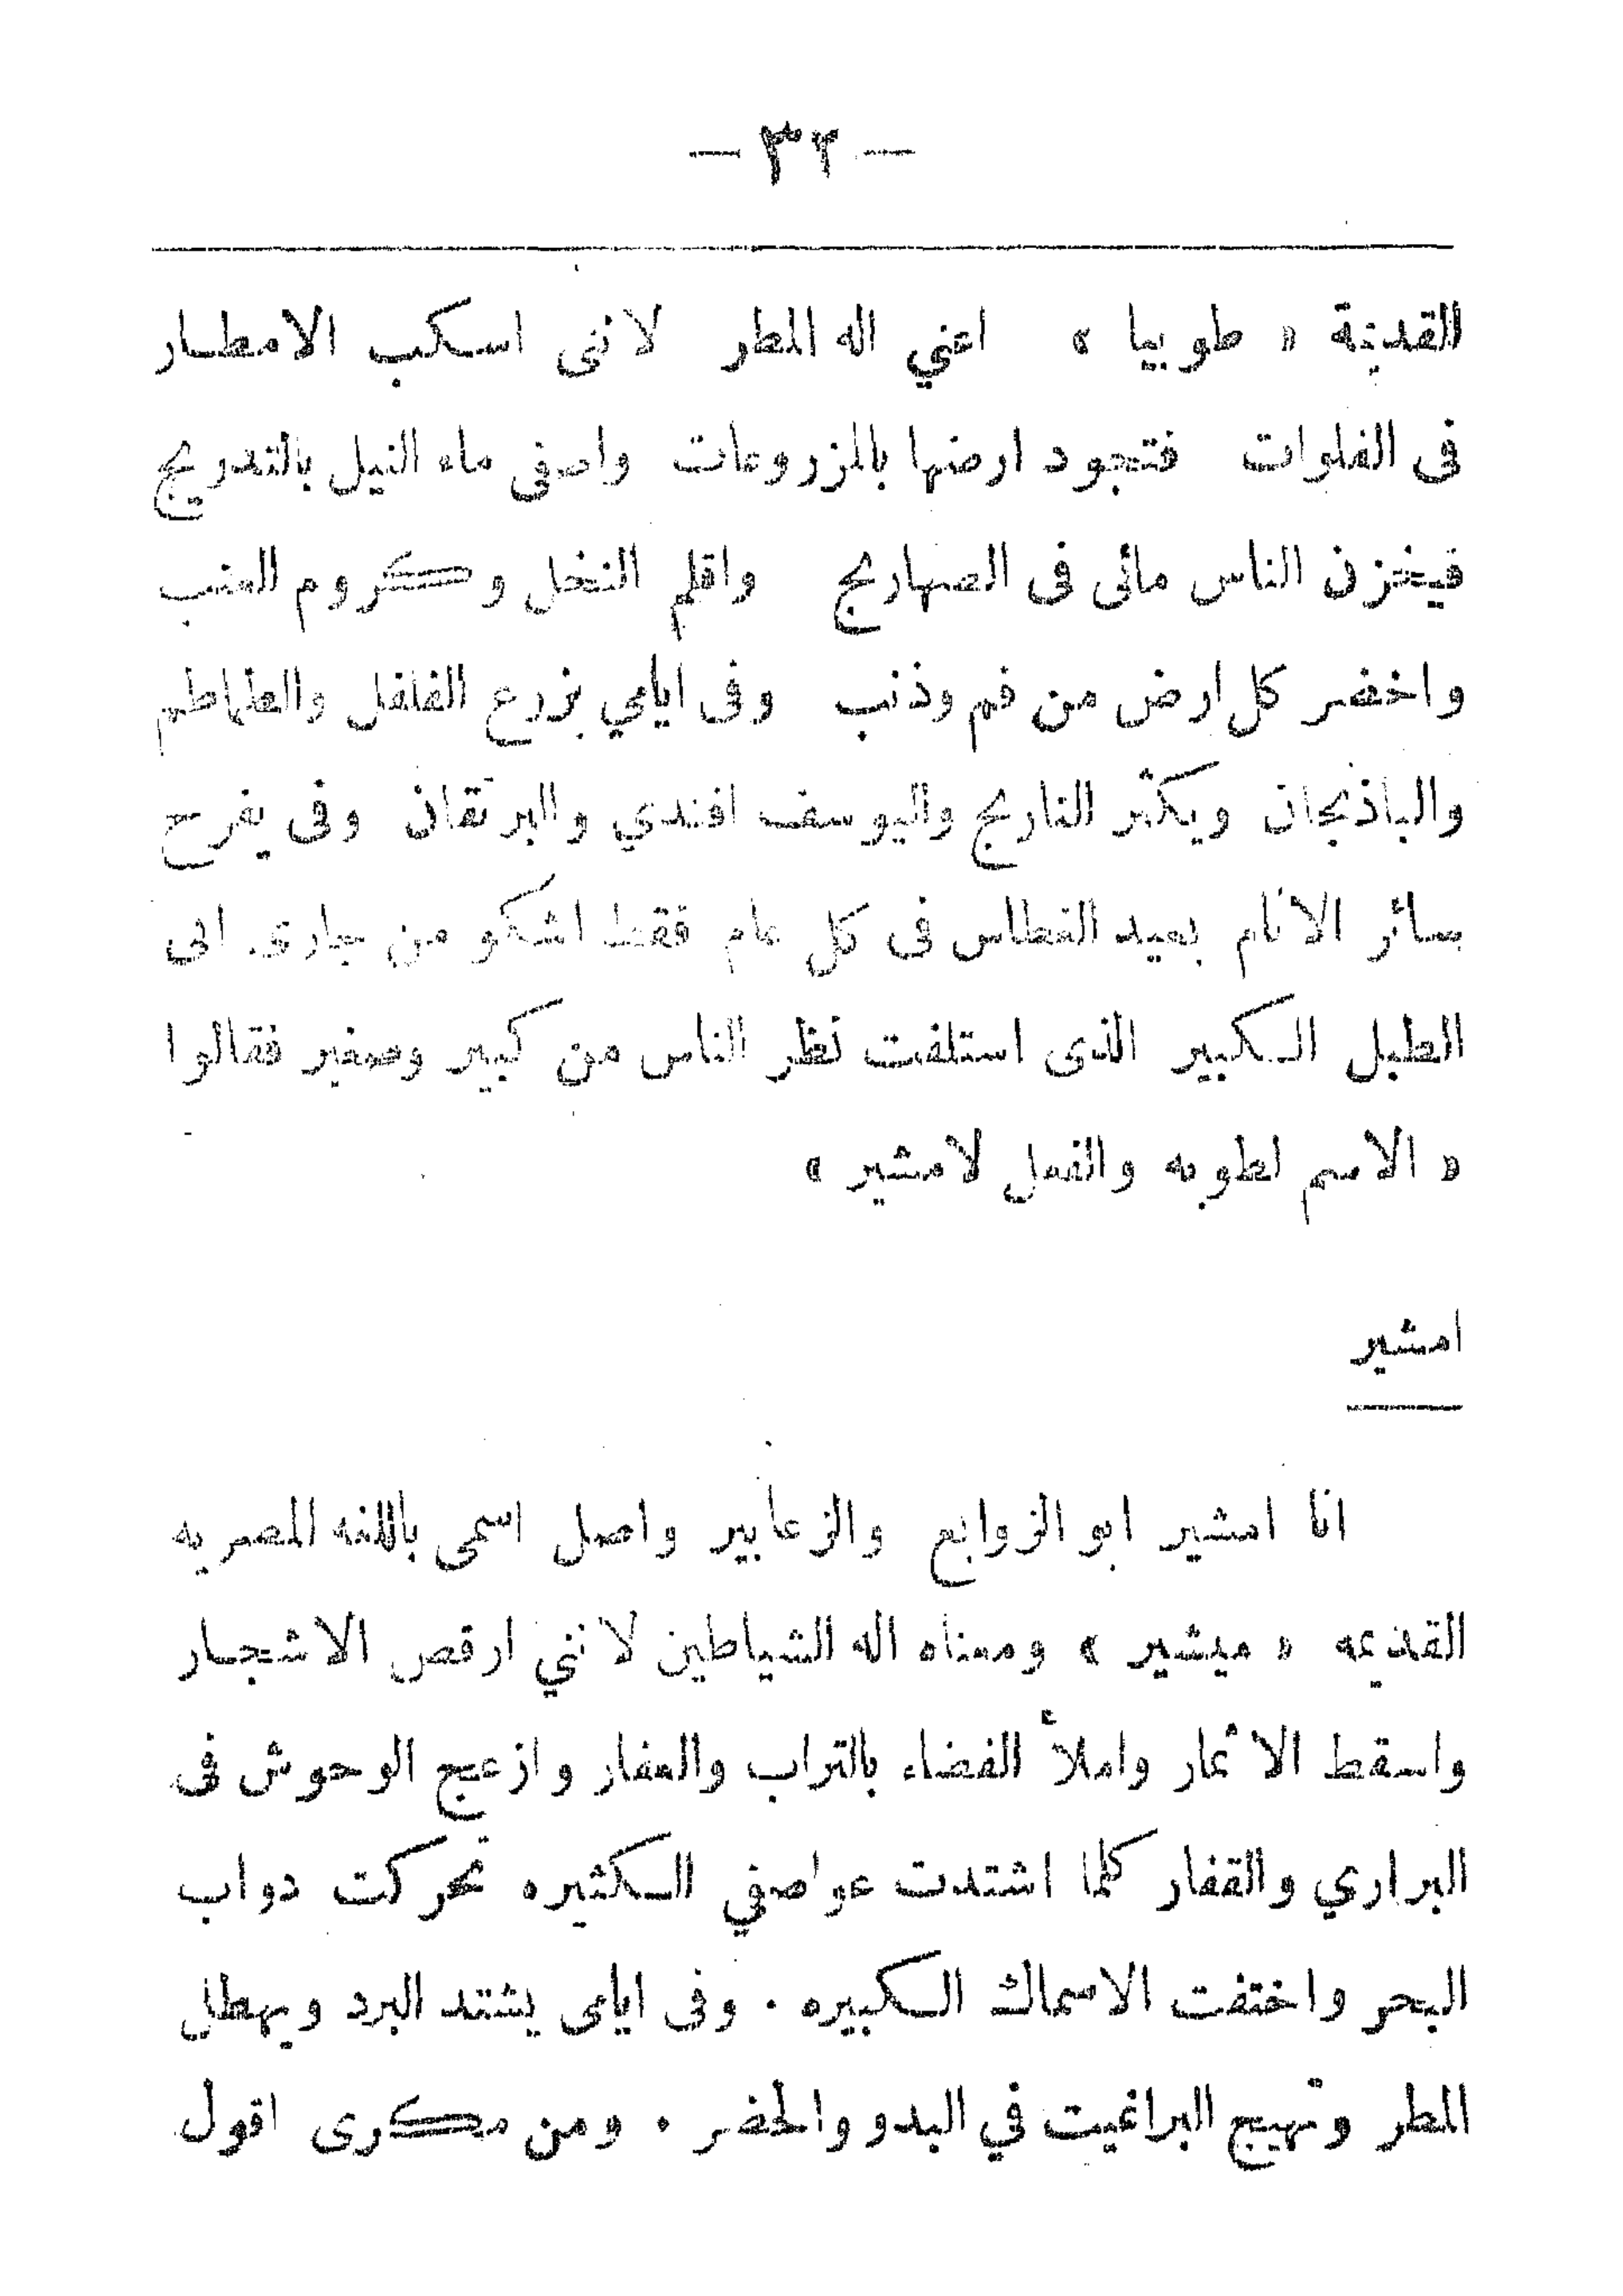 — ٣٢ —
القديمة « طوبيا » اعني اله المطر لانى اسكب الامطار
فى الفلوات فتجود ارضها بالمزروعات واصفى ماء النيل بالتدريج
فيخزن الناس مائى فى الصهاريج واقلم النخل وكروم العنب
واخضر كل ارض من فم وذنب وفى ايامي يزرع الفلفل والطماطم
والباذنجان ويكثر النارنج واليوسف افندي والبرتقان وفى يفرح
سائر الانام بعيد الغطاس فى كل عام فقط اشكو من جارى ابى
الطبل الكبير الذى استلفت نظر الناس من كبير وصغير فقالوا
« الاسم لطوبه والفعل لامشير »
امشير
انا امشير ابو الزوابع والزعابير واصل اسمى باللغه المصريه
القديمه « ميشير » ومعناه اله الشياطين لانني ارقص الاشجار
واسقط الاثمار واملأ الفضاء بالتراب والعفار وازعج الوحوش فى
البراري والقفار كلما اشتدت عواصفي الكثيره تحركت دواب
البحر واختفت الاسماك الكبيره . وفى ايامى يشتد البرد ويهطل
المطر وتهيج البراغيت في البدو والحضر . ومن مكرى اقول